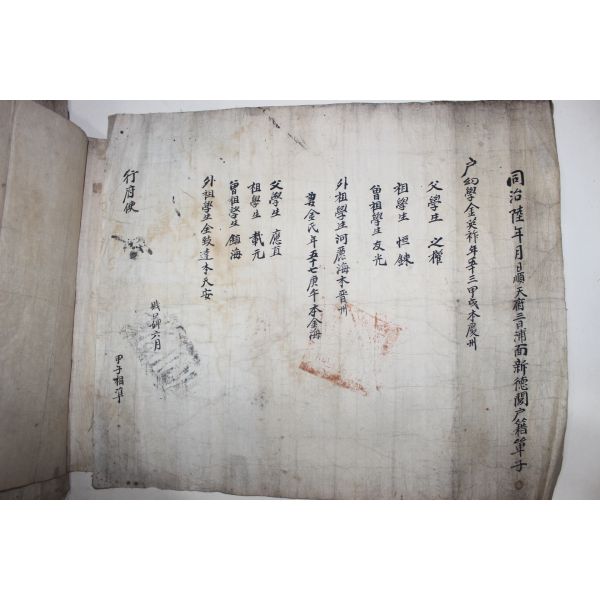 同治陸年月日順天府三日浦面新德閣戶籍單子
戶幼學金英祚年五十三甲戌本慶州
父學生之權
祖學生恒鍊
曾祖學生友光
外祖學生河麗海本晉州
妻金氏年五十七庚午本金海
父學生應直
祖學生載元
曾祖學生鎭海
外祖學生金致達本天安
賤婢六月
甲子相準
行府使